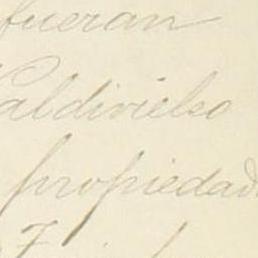 fueran
Valdivielso
propiedad